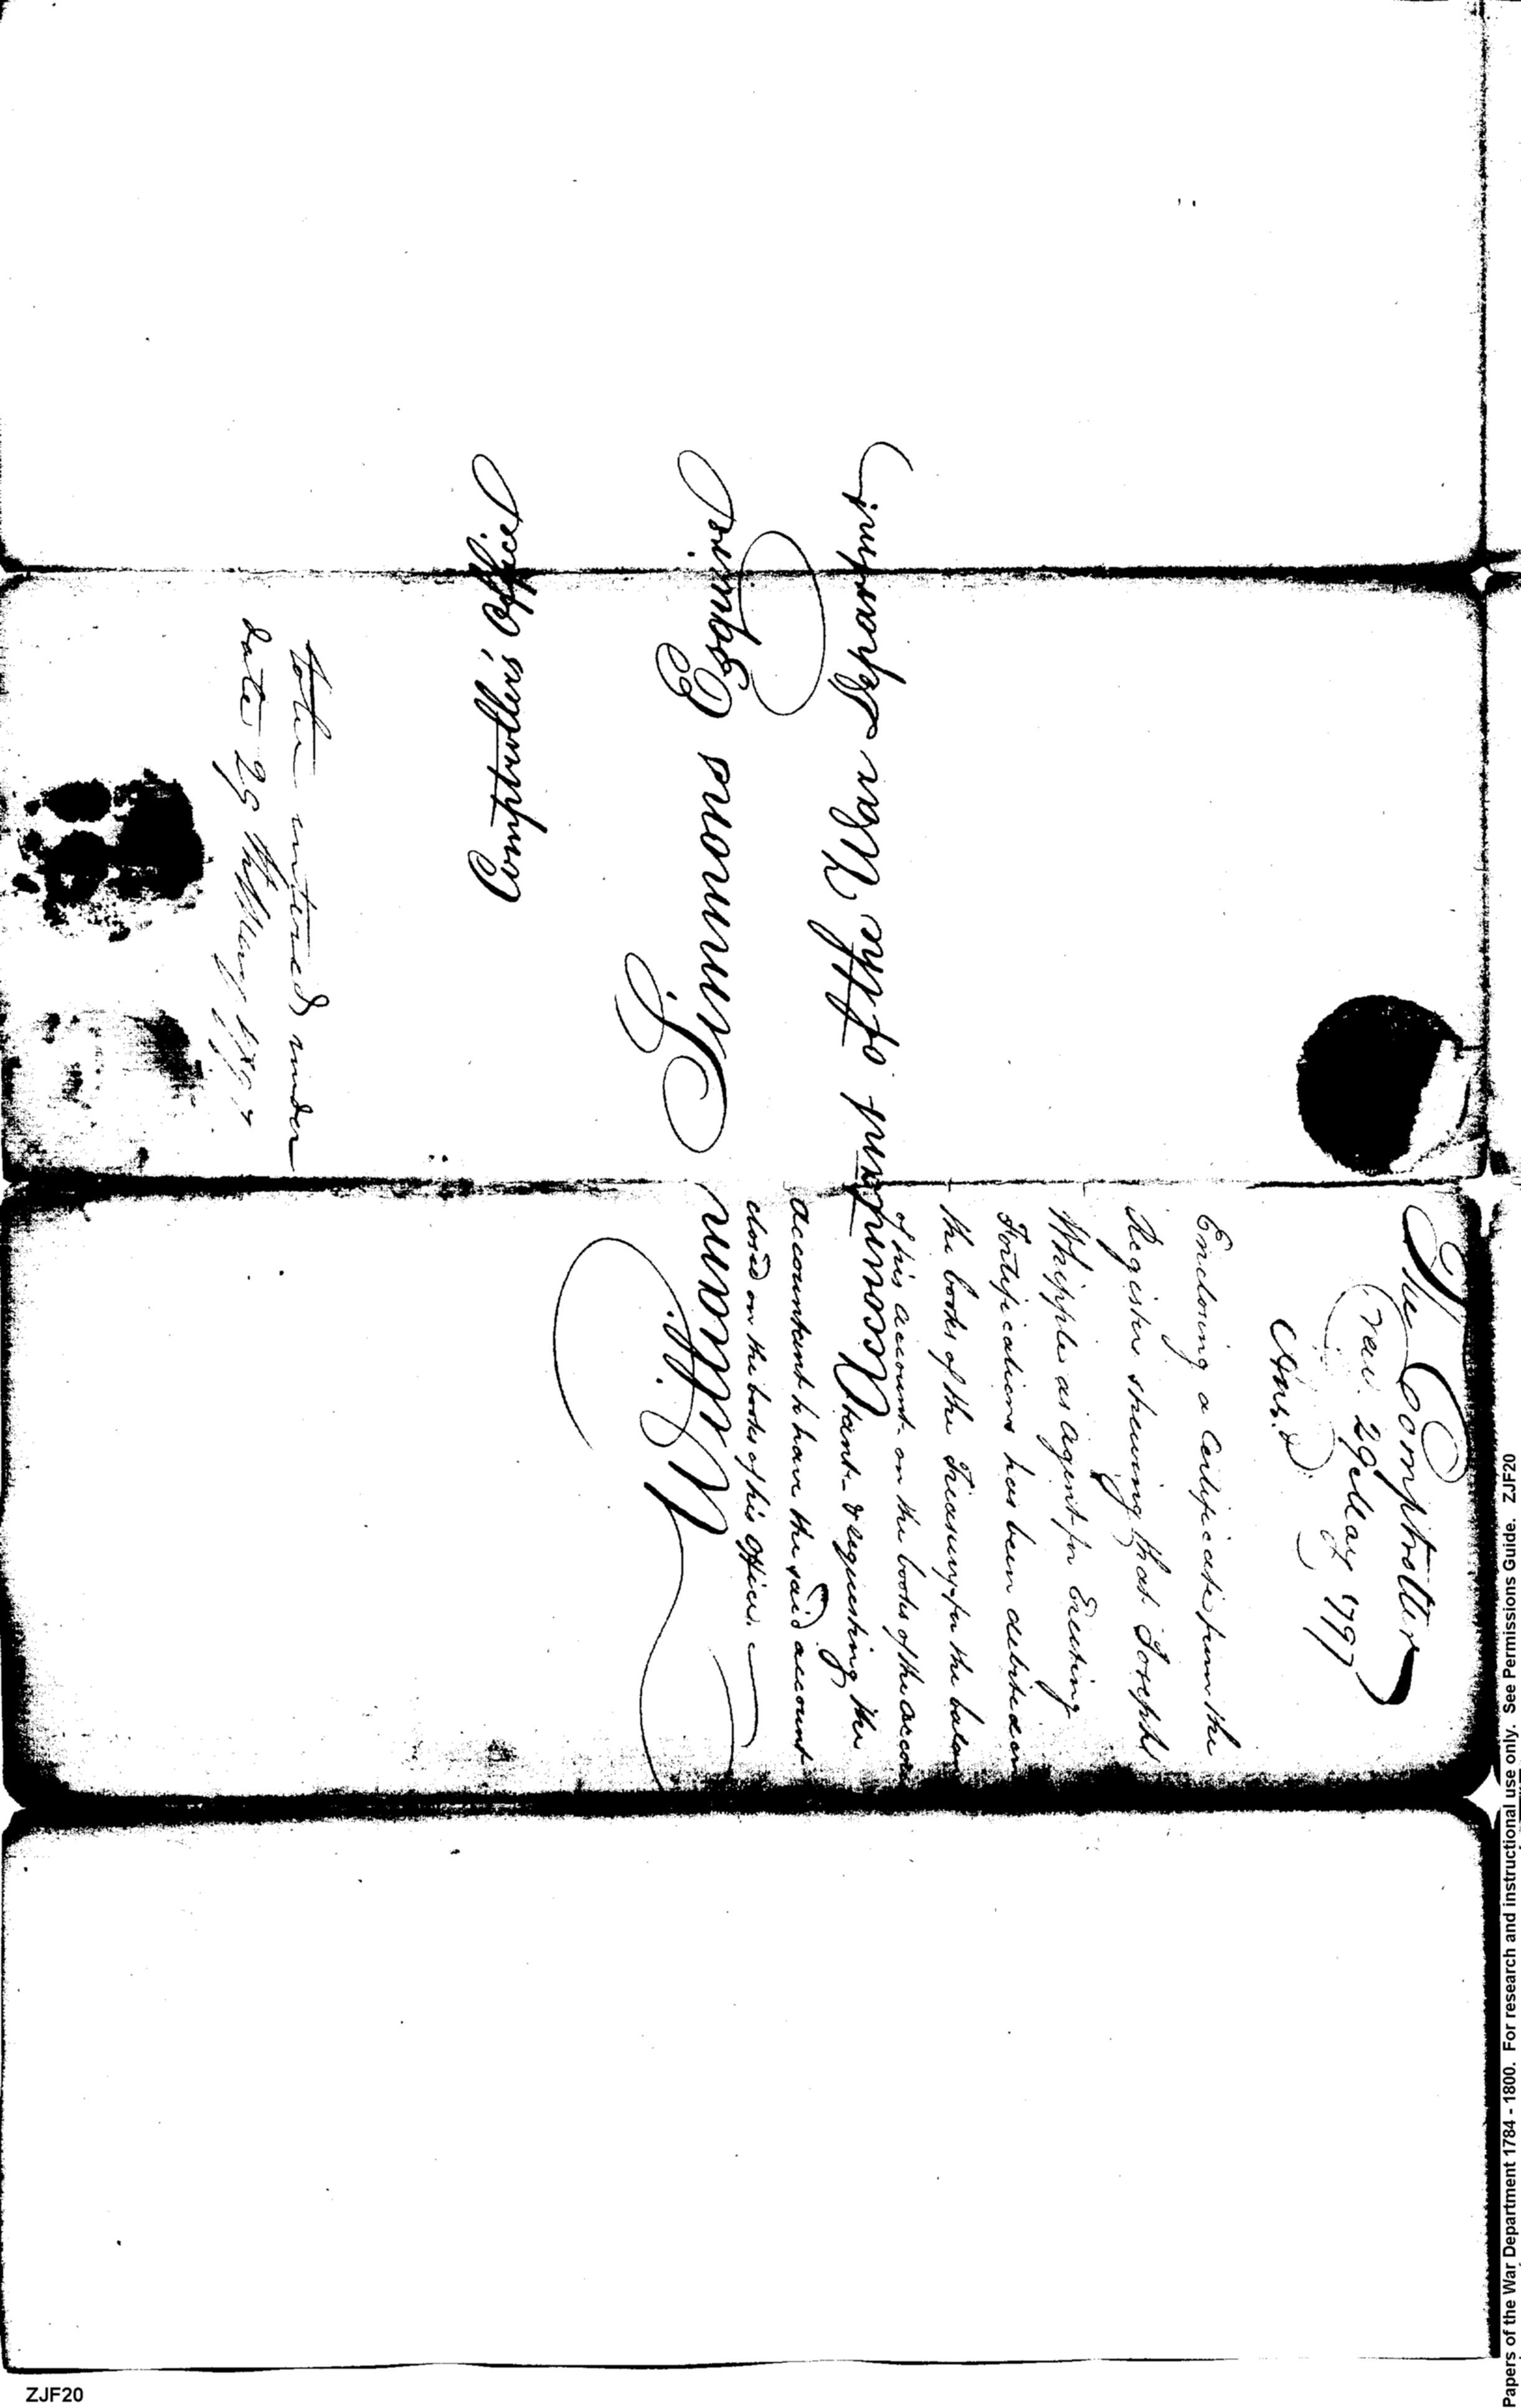 The Comptroller
rec'd. 29 May 1797
Ans.d
Enclosing a Certificate from the
Register shewing that Joseph
Whipple as agent for Erecting
Fortifications has been debited on
the books of the Treasury for the balan
of his account on the books of the Accoun
tant & requesting the
accountant to have the said account
closed on the books of his Office.
William Simmons Esquire
Accountant of the War Departmt
Comptroller's Office
to be entered under
date 29th May 1797
Papers of the War Department 1784 - 1800. For research and instructional use only. See Permissions Guide. ZJF20
ZJF20